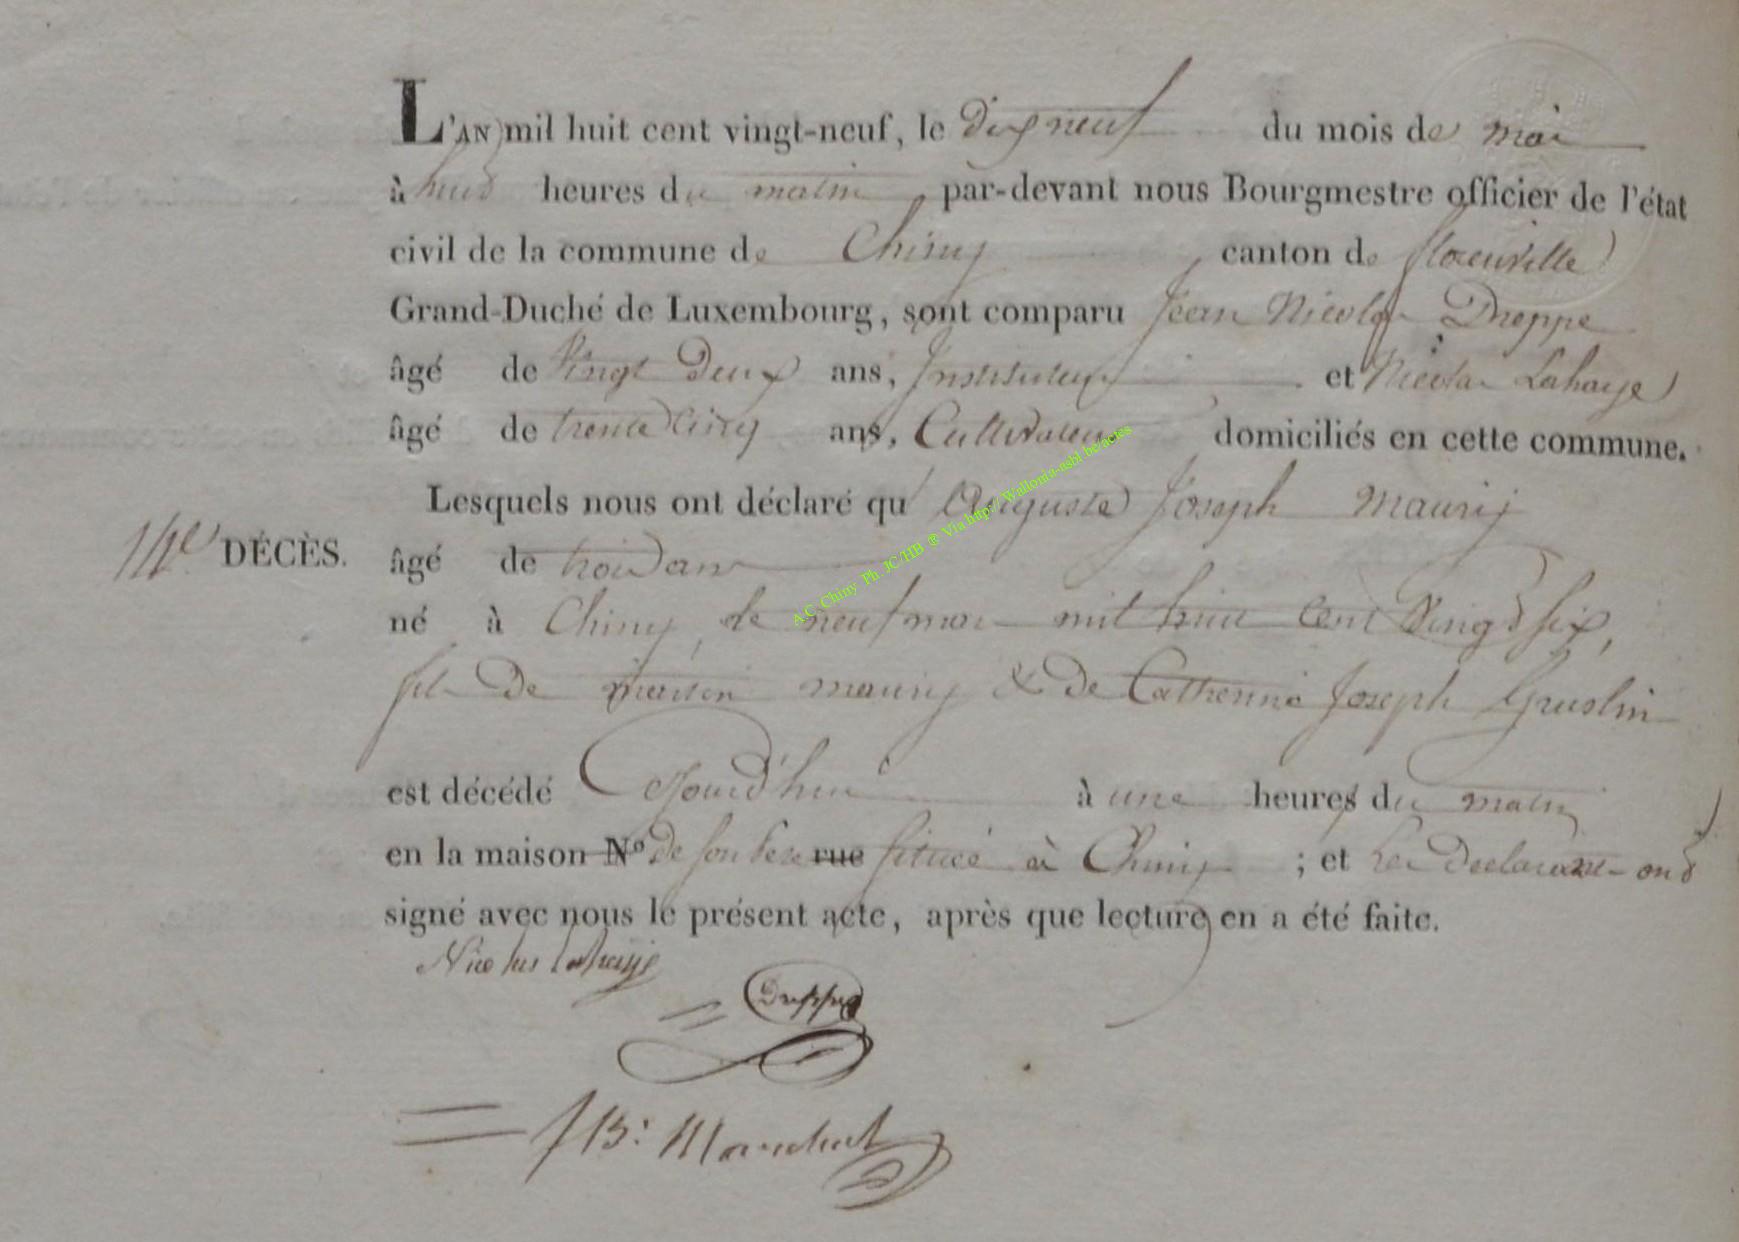 L'AN mil huit cent vingt-neuf, le dix neuf du mois de mai
à huit heures du matin, par-devant nous Bourgmestre officier de l'état
civil de la commune de Chiny canton de florenville
Grand-Duché de Luxembourg, sont comparu Jean Nicolas Dreppe
âgé de Vingt Deux ans, Instituteur et Nicolas Lahaye
âgé de trente Cinq ans, Cultivateur domiciliés en cette commune.
Lesquels nous ont déclaré qu' Auguste Joseph Maurij
DÉCÈS.
âgé de trois ans
né à Chiny, le neuf mai mil huit Cent Vingt six,
fils de martin maurij & de Catherine Joseph Gruslin
est décédé Cejourd'hui à une heures du matin
en la maison N° de son Pere rue située à Chiny ; et les Declarans ont
signé avec nous le présent acte, après que lecture en a été faite.
Nicolas Lahaije
Dreppe
JB: Marechal
A.C. Chiny Ph. JC/HB @ Via http://Wallonia-asbl.be/actes